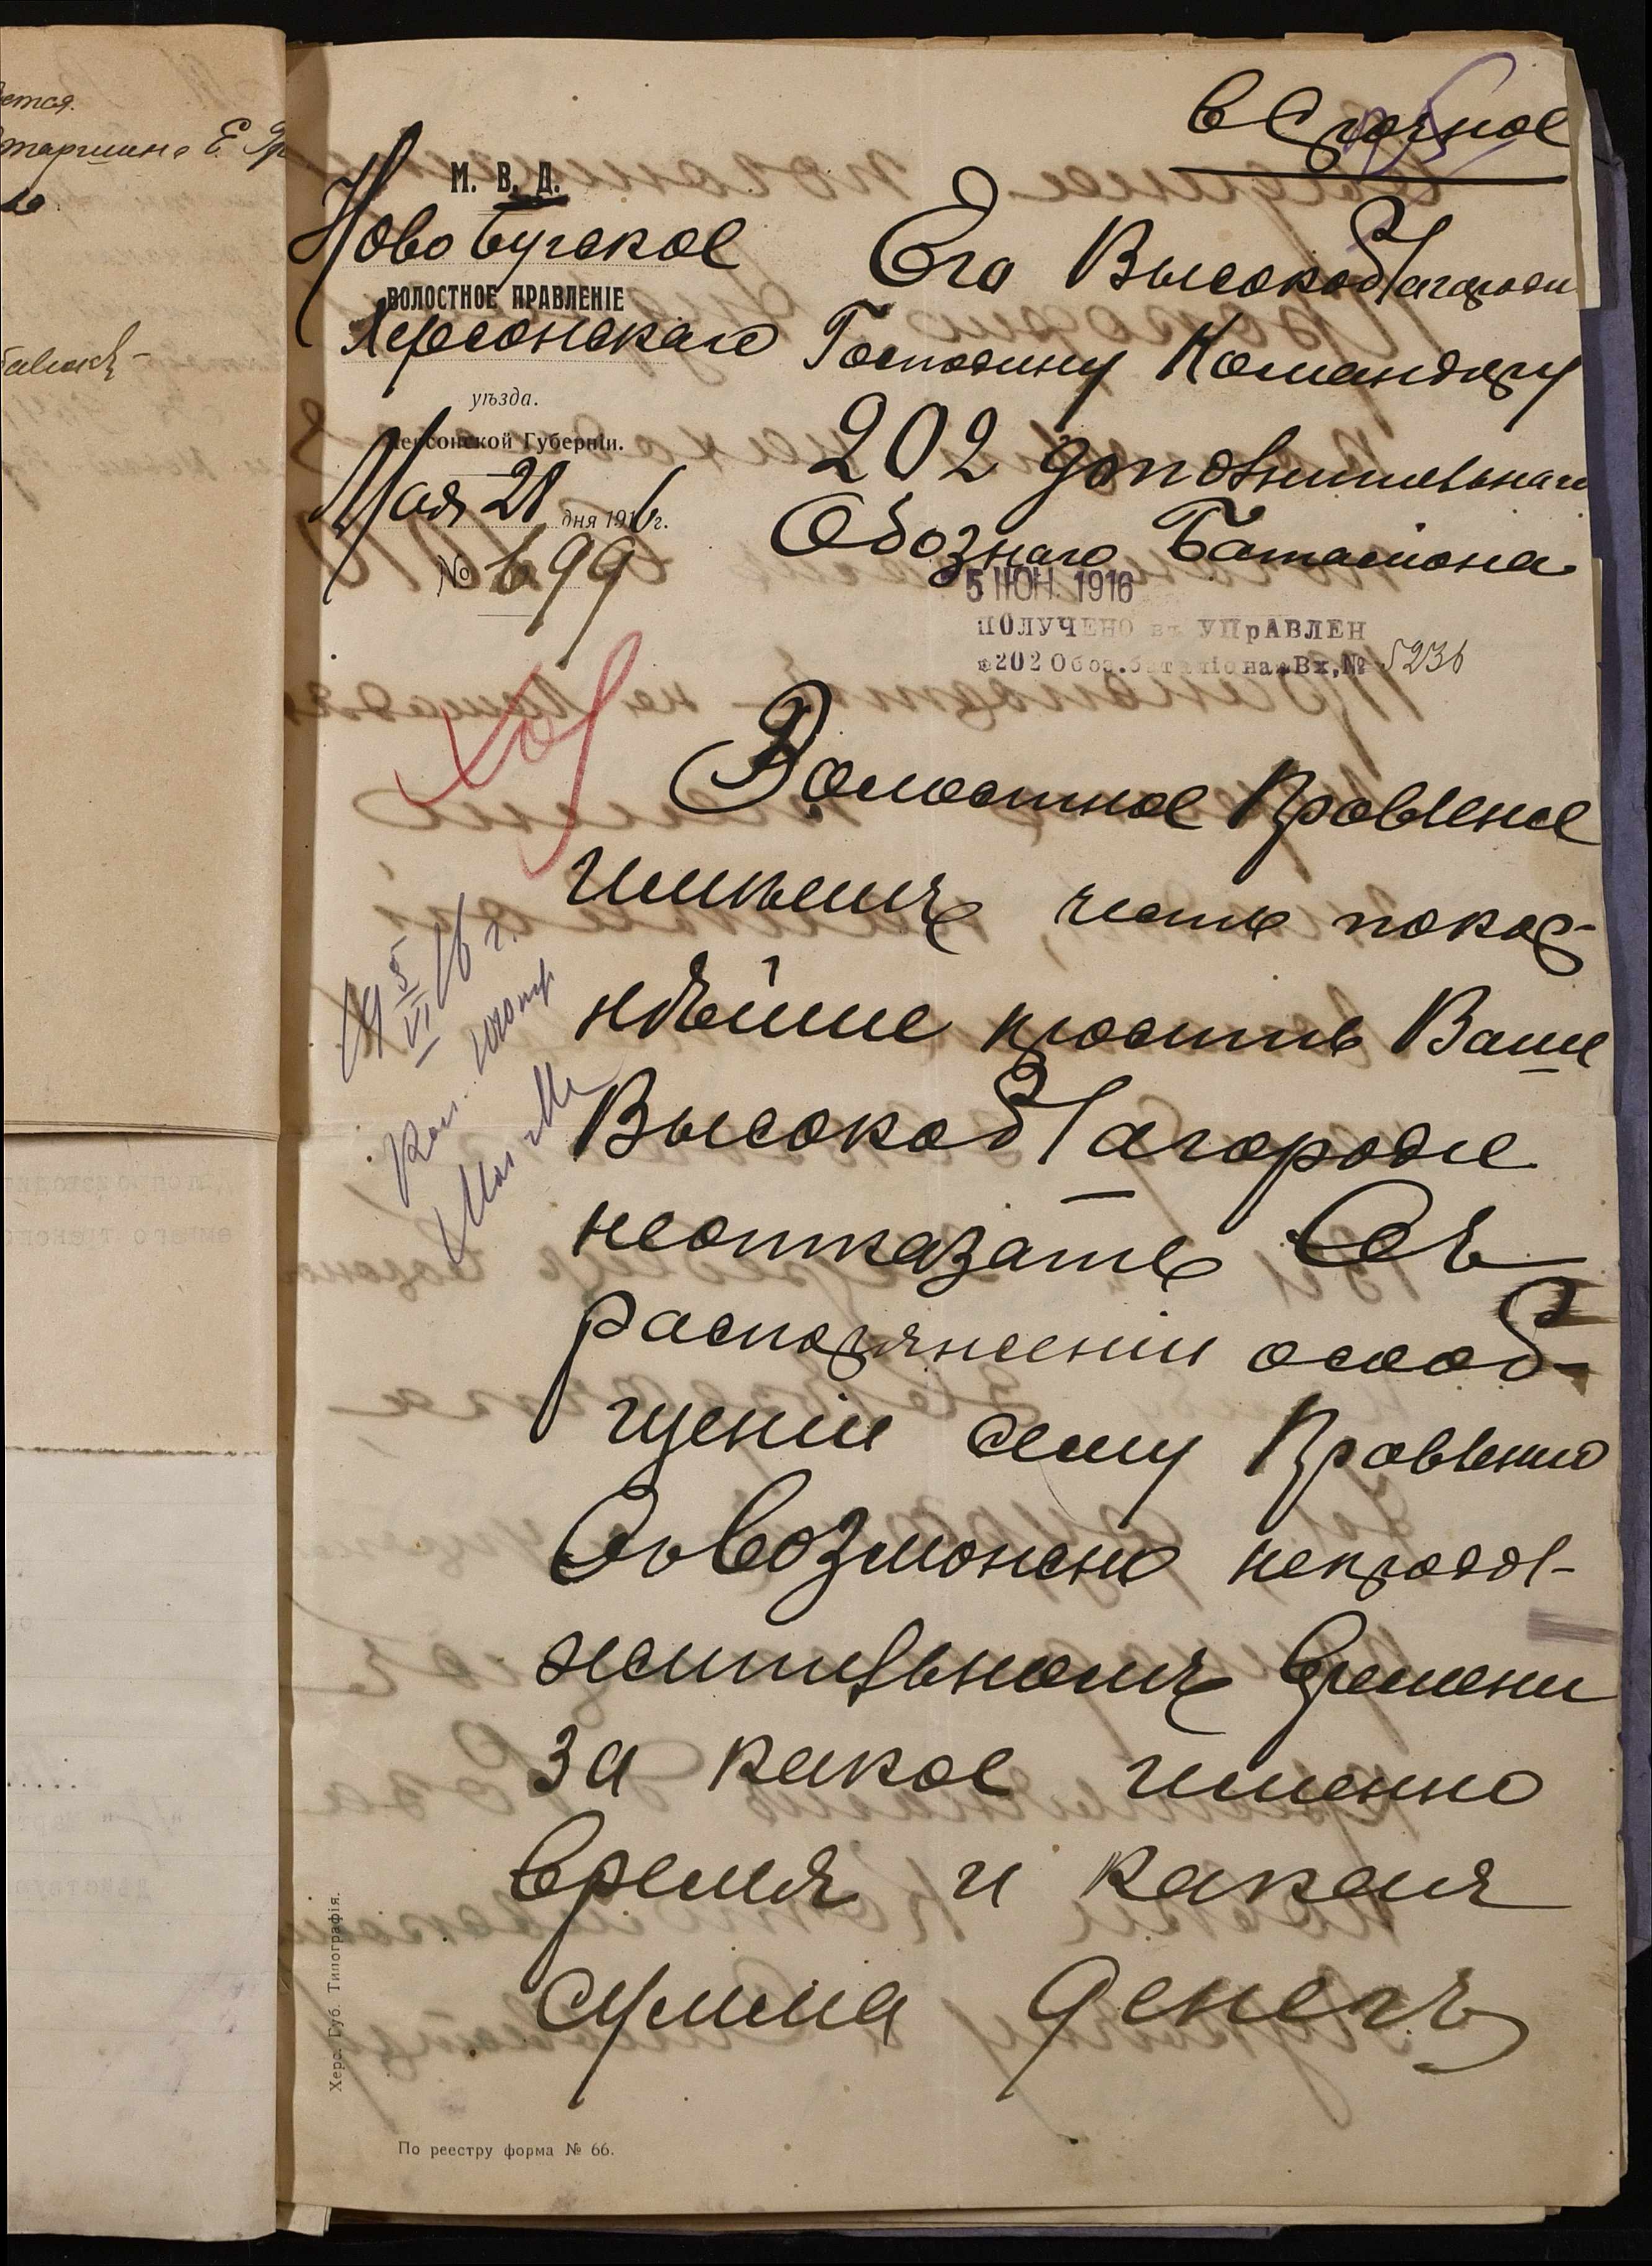 ется.
старшина Е.
В Срочное
М. В. Д.
Ново Бугское
ВОЛОСТНОЕ ПРАВЛЕНІЕ
Херсонскаго
уѣзда.
Херсонской Губерніи.
Мая 28 дня 1916 г.
№ 699
Его Высокоблагородию
Господину Командиру
202 дополнительнаго
Обознаго Баталиона
5 ІЮН. 1916
ПОЛУЧЕНО въ УПрАВЛЕН
202 Обоз. баталіона Вх, № 5236
Волостное Провление
имѣетъ честь покор-
нѣйше просить Ваше
Высокоблагородие
неоткозать Съ
распоряжении осооб-
щении сему Провлению
Овозможно непродол-
жительномъ времени
за какое именно
время и какая
сумма денегъ
5/VI 16 г.
Херс. Губ. Типографія.
По реестру форма № 66.